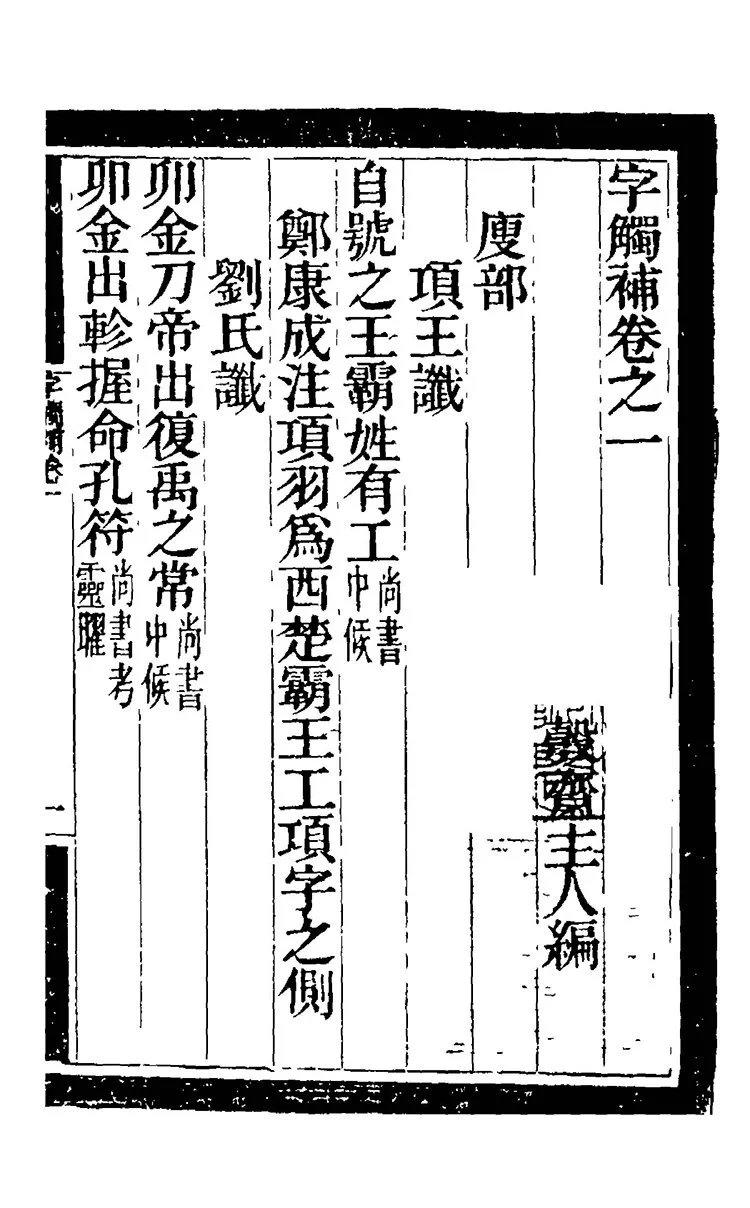 字觸補卷之一
齋主人編
廋部
項王讖
自號之王霸姓有工尚書中候
鄭康成注項羽為西楚霸王工項字之側
劉氏讖
卯金刀帝出復禹之常尚書中候
卯金出軫握命孔符尚書考靈曜
字觸補卷一
一